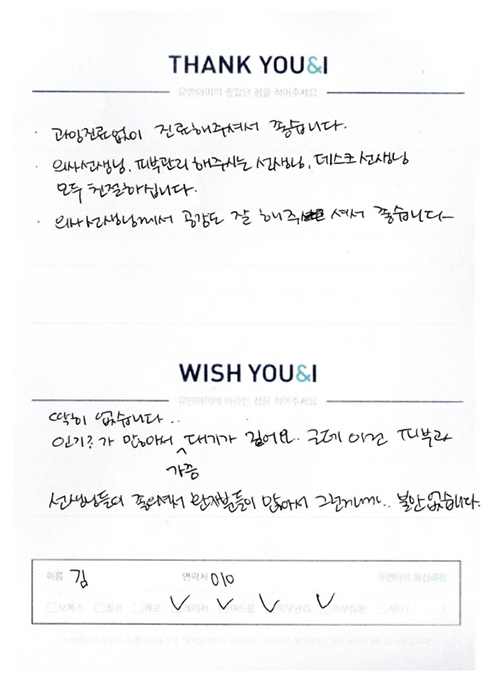 THANK YOU&I
유앤아이의 좋았던 점을 적어주세요
· 과잉진료없이 진료해주셔서 좋습니다.
· 의사선생님, 피부관리 해주시는 선생님, 데스크 선생님
모두 친절하십니다.
· 의사선생님께서 공감도 잘 해주셔서 좋습니다
WISH YOU&I
유앤아이에 바라는 점을 적어주세요
딱히 없습니다..
인기?가 많아서 가끔 대기가 길어요. 근데 이건 피부과
선생님들이 좋으셔서 환자분들이 많아서 그런거니까.. 불만 없습니다.
이름 김 연락처 010 유앤아이 왕십리점
제모 레이저 여드름 피부관리 기타